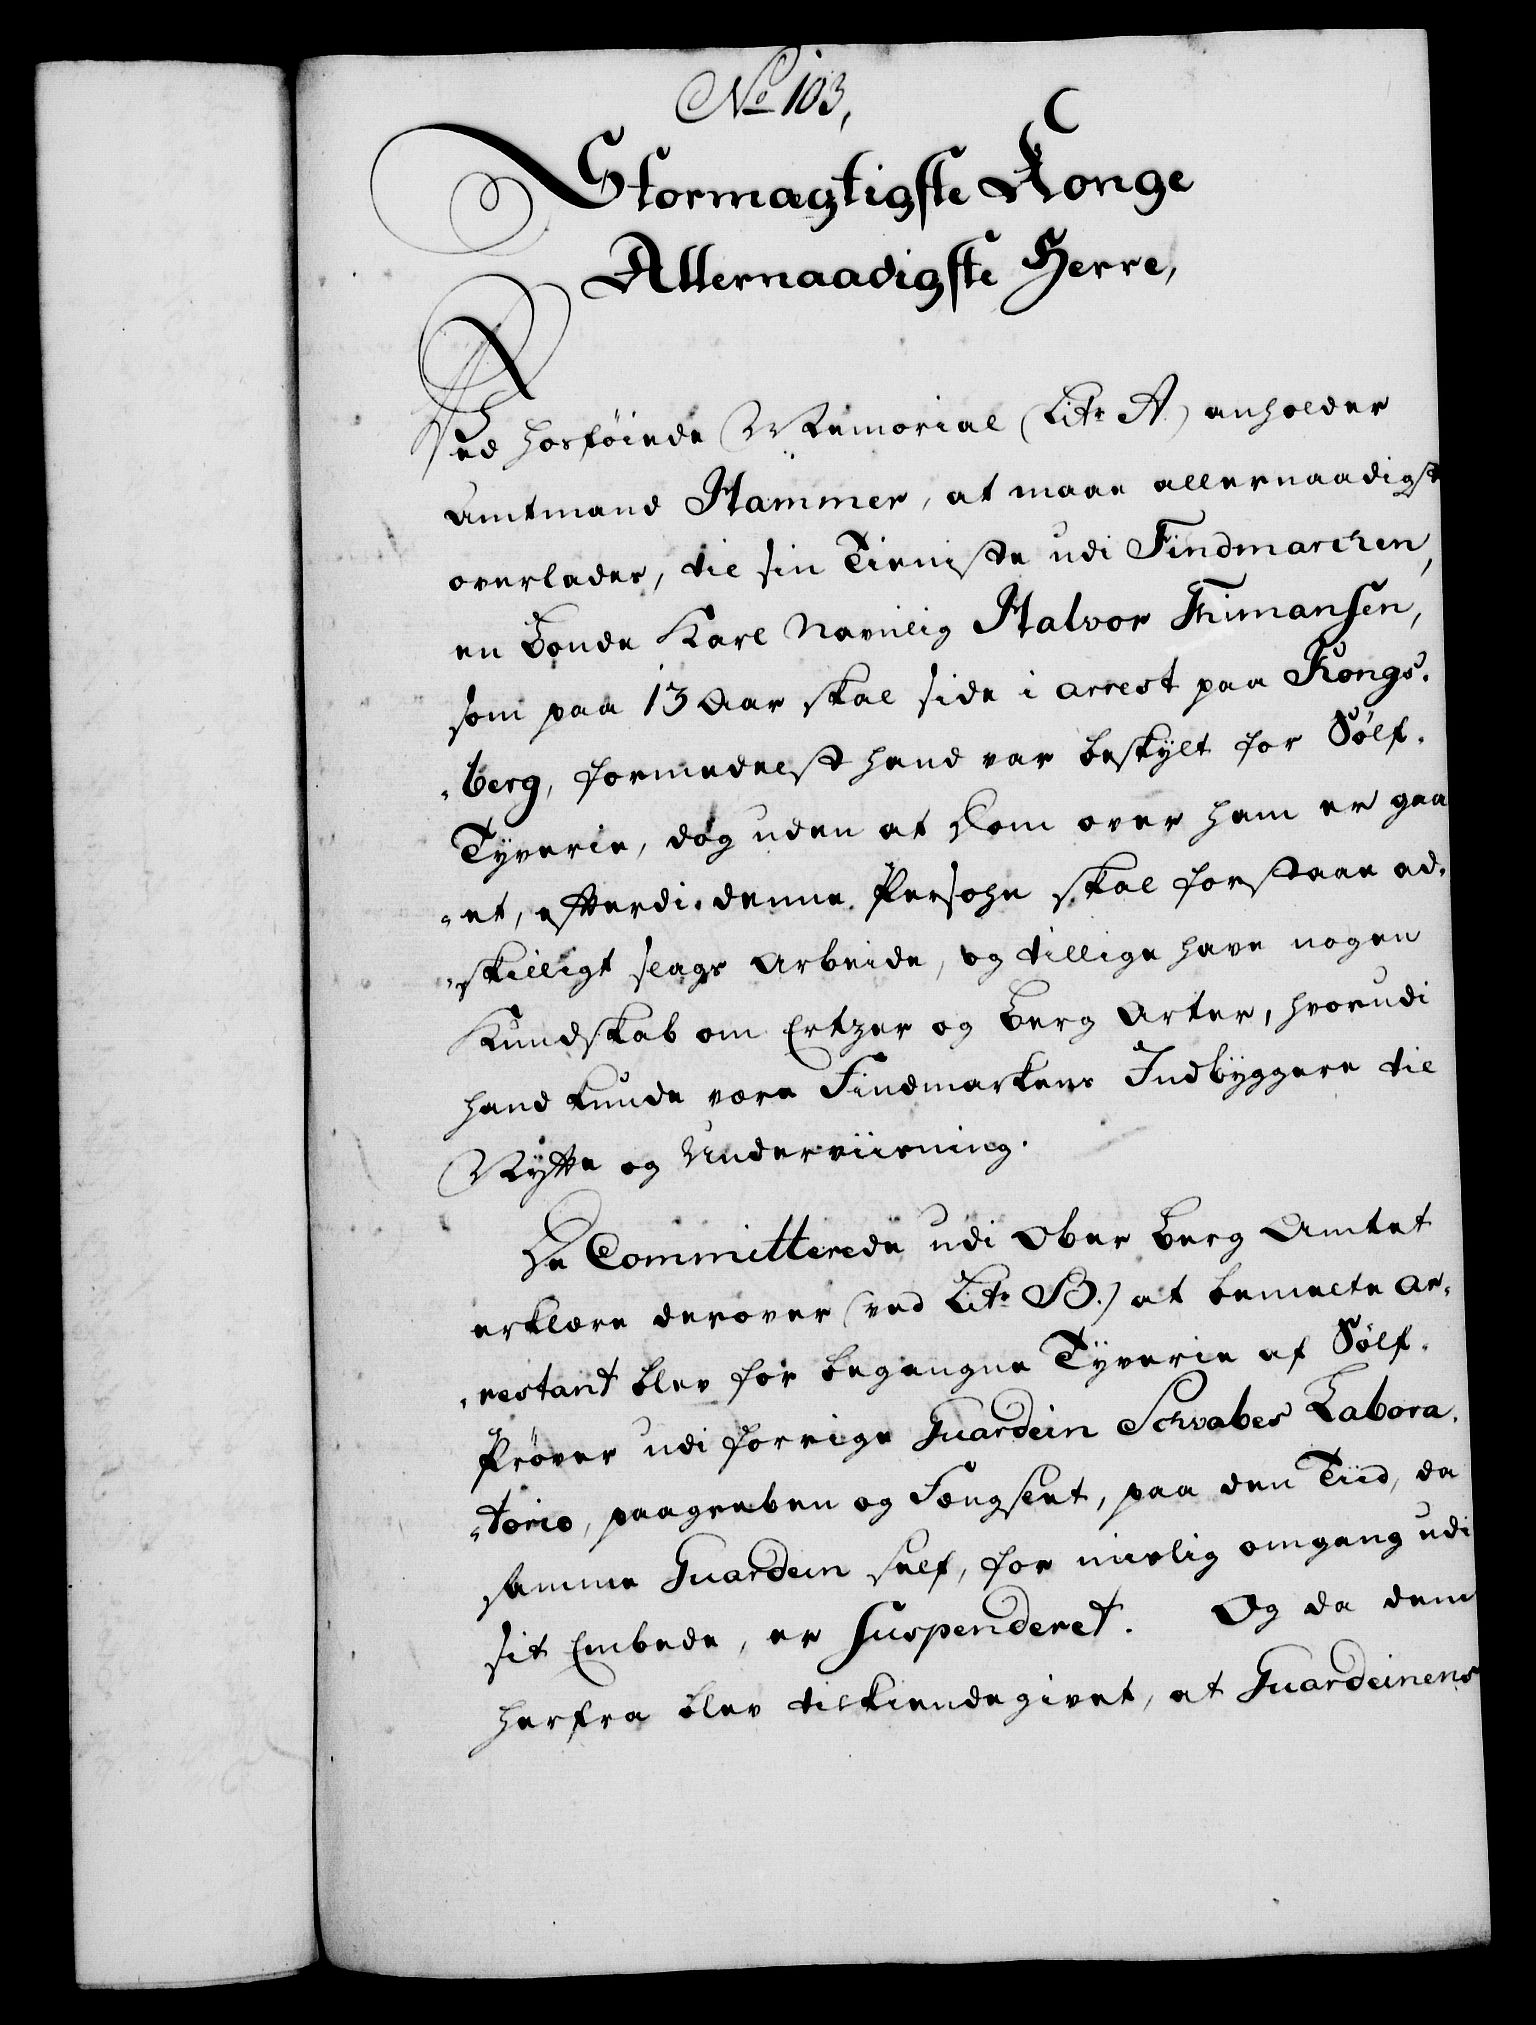 No 103,
Stormægtigste Konge
Allernaadigste Herre,
Ved hosföiede Memorial (Litr A) anholder
Amtmand Hammer, at maae allernaadigst
overlades, til sin Tieniste udi Findmarchen,
en Bonde Karl navnlig Halvor Thimansen,
som paa 13 Aar skal side i arrest paa Kongs-
-berg, formedelst hand var beskylt for Sölf-
Tyverie, dog uden at Dom over ham er gaa
-et, efterdi denne Persohn skal forstaae ad-
-skilligt slags Arbeide, og tillige have nogen
Kundskab om Ertzer og Berg Arter, hvorudi
hand kunde være Findmarkens Indbyggere til
Nytte og Underviisning.
De Committerede udi Ober Berg Amtet
erklære derover (ved Litr B.) at bemelte Ar-
-restant blev for begangne Tyverie af Sölf-
Pröver udi forrige Guardein Schvabes Labora-
-torio, paagreben og Fængslet, paa den Tiid, da
samme Guardein self, for mislig omgang udi
sit Embede, er suspenderet. Og da dem
herfra blev tilkiendegivet, at Guardeinens